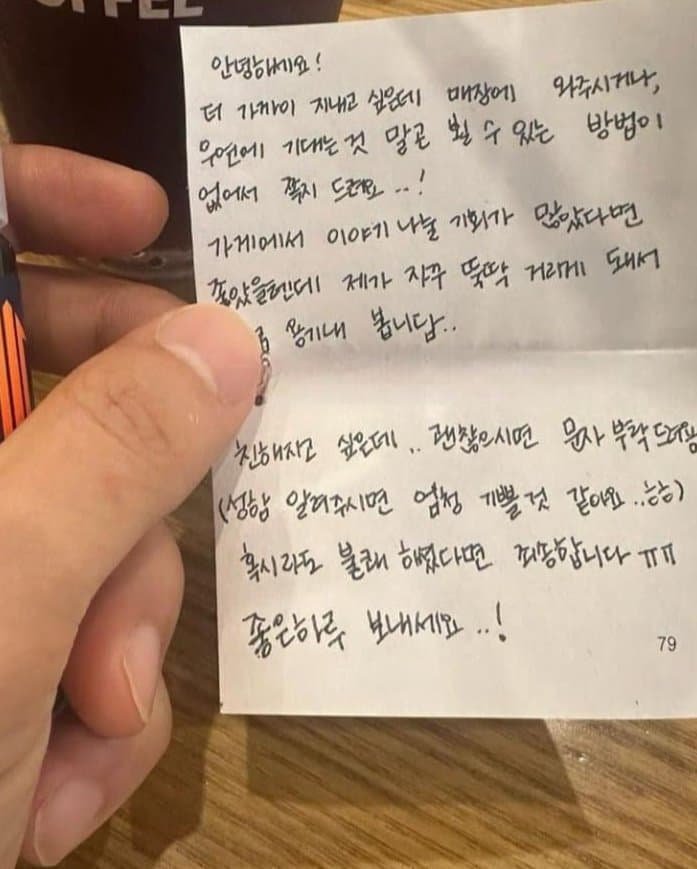 OFFEE
안녕하세요!
더 가까이 지내고 싶은데 매장에 와주시거나,
우연에 기대는것 말곤 뵐 수 있는 방법이
없어서 쪽지 드려요..!
가게에서 이야기 나눌 기회가 많았다면
좋았을텐데 제가 자꾸 뚝딱 거리게 돼서
용기내 봅니답..
친해지고 싶은데.. 괜찮으시면 문자 부탁드려용
(성함 알려주시면 엄청 기쁠것 같아요..ㅎㅎ)
혹시라도 불쾌 하셨다면 죄송합니다 ㅠㅠ
좋은하루 보내세요..!
79